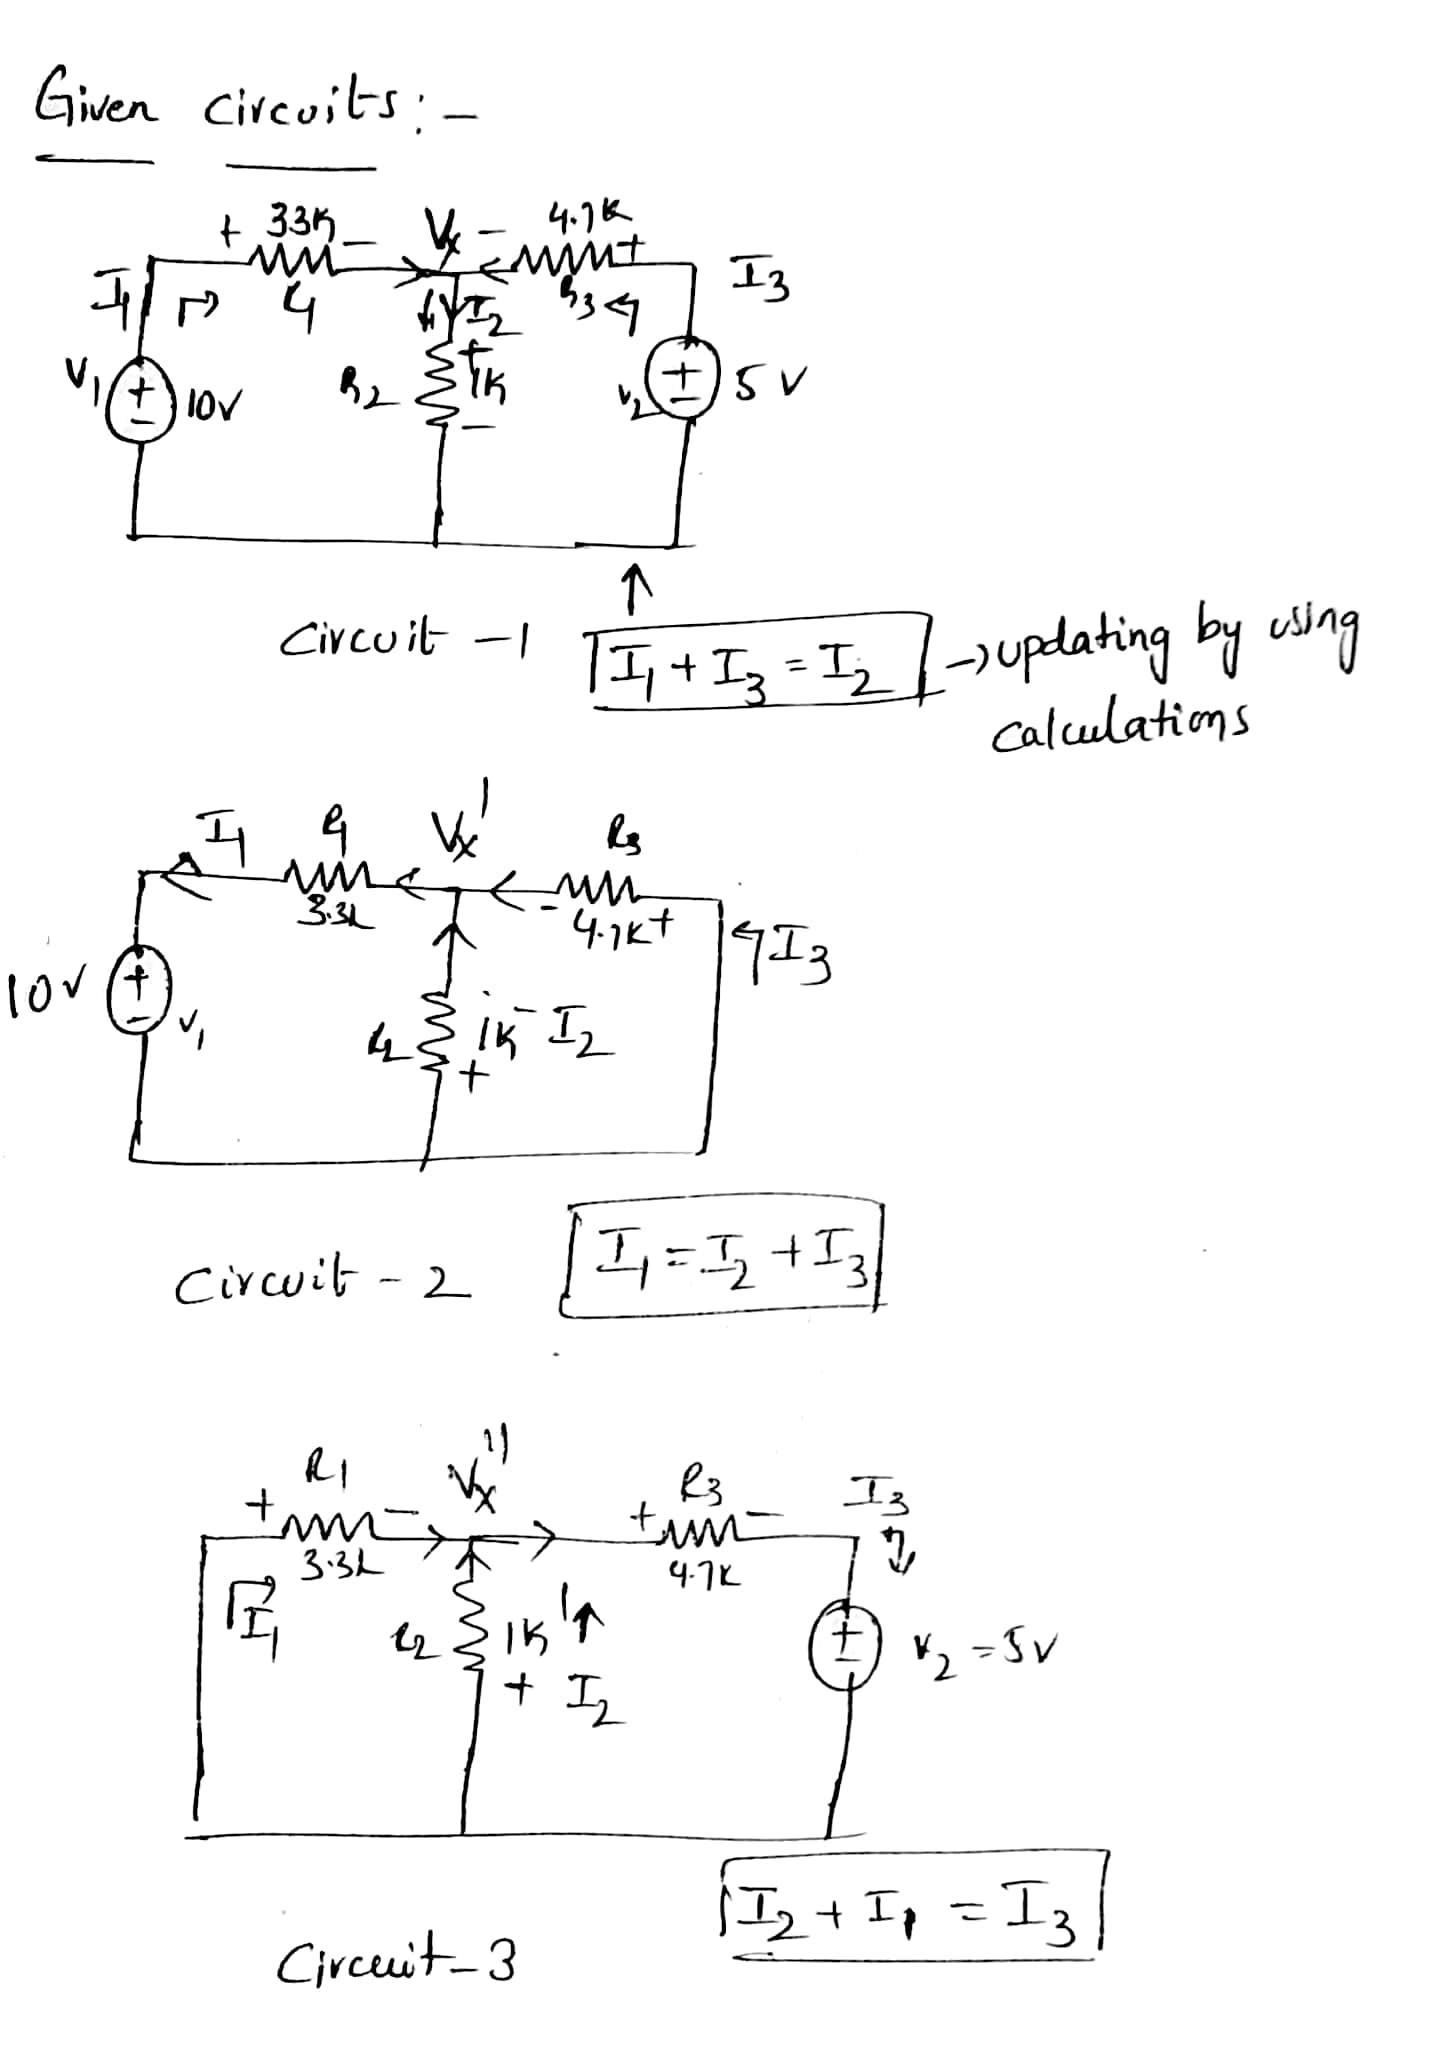 Given circuits:-
+ 33K - Vx - 4.7K +
I1 I2 R3 I3
V1 + - 10V R2 + 1K - V2 + - 5V
Circuit -1 I1 + I3 = I2 → updating by using
calculations
I1 Vx' R3
3.3k - 4.7K +
I3
10V + - V1 1K - I2
+
Circuit - 2 I1 = I2 + I3
R1 Vx'' R3 I3
+ - + -
3.3k 4.7K
I1 1K
+ I2 + - V2 = 5V
I2 + I1 = I3
Circuit-3